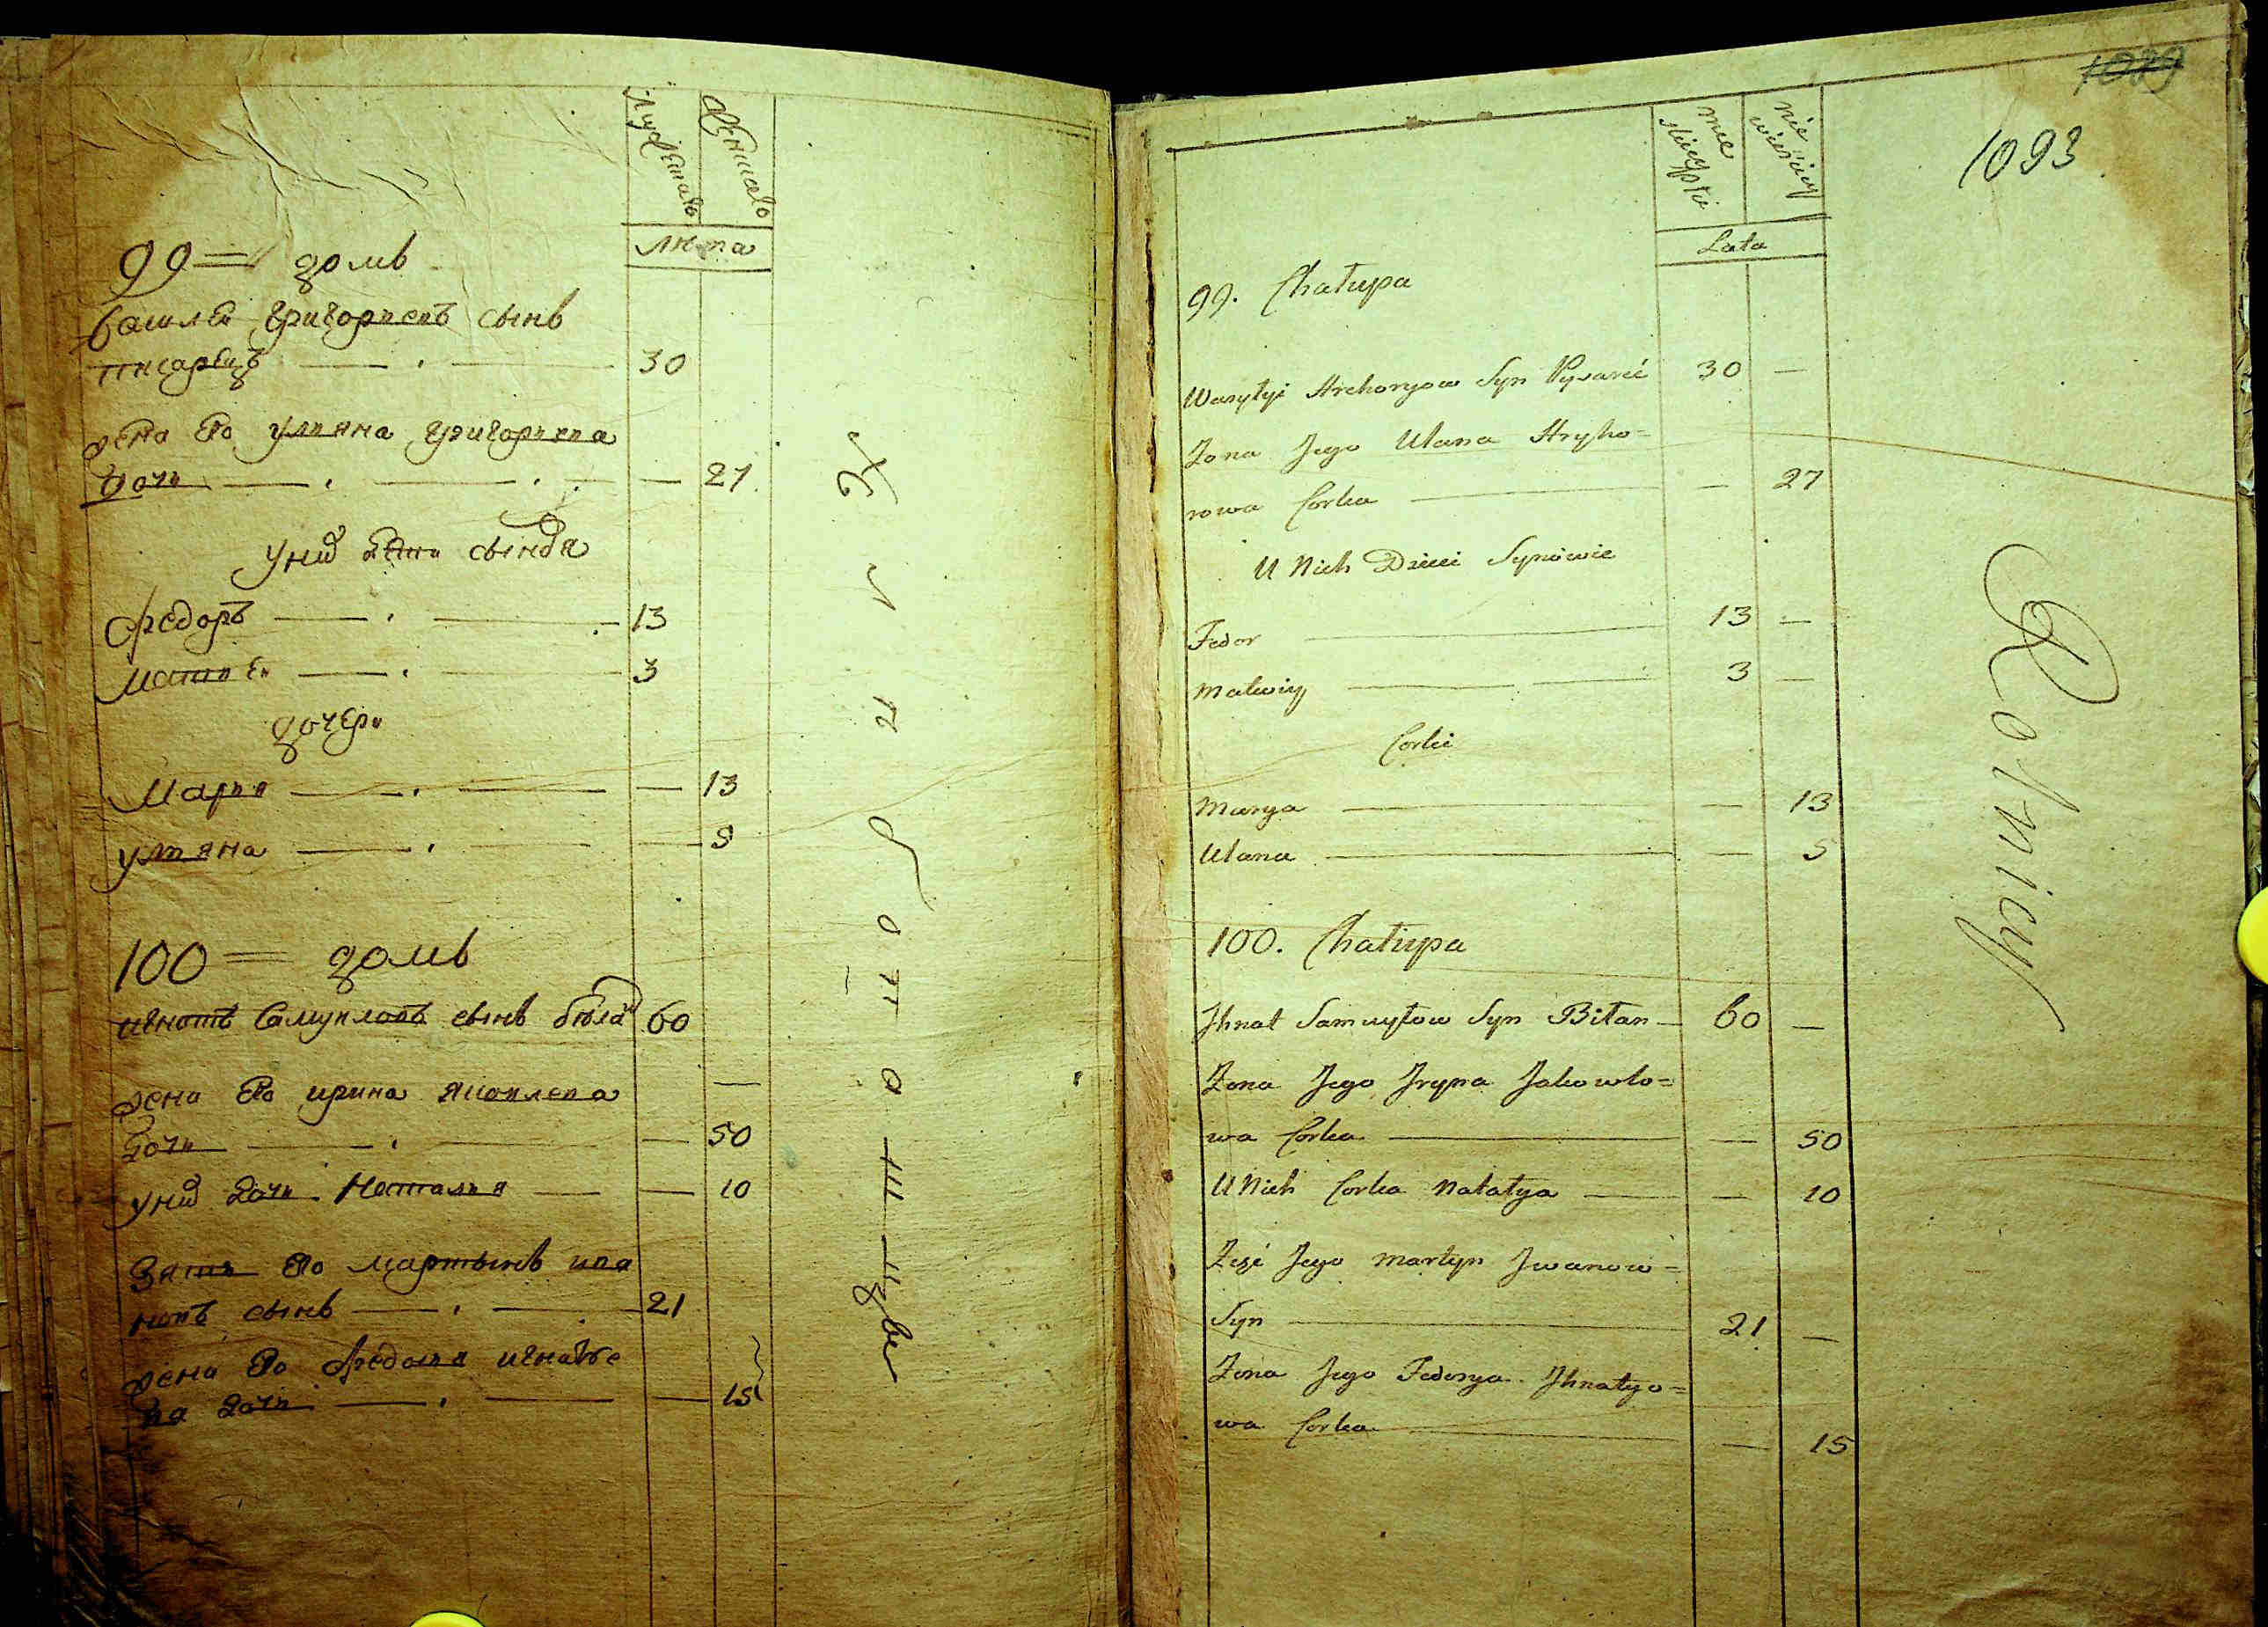 Мужеска Женска
лѣта
99 = домъ
василей григориевъ сынъ
писарецъ 30
жена его улияна григориева
дочь — 27
у них дѣти сыновя
Федоръ 13
Матвей 3
дочери
Мария — 13
улияна — 5
100 = домъ
игнатъ Самуиловъ сынъ бѣлан 60
жена его ирина яковлева —
дочь — 50
у них дочь Наталия — 10
Зять его мартынъ ива
новъ сынъ 21
жена его Федосия игнатье
ва дочь — 15
1089
1093
mę skiey płci nie wieściey
Lata
99. Chałupa
Wasylyi Hrehoryow Syn Pysareć 30 —
Żona Jego Ulana Hryho=
rowa Corka — 27
U Nich Dzieci Synowie
Fedor 13 —
Matwiy 3 —
Corki
Marya — 13
Ulana — 5
100. Chałupa
Jhnat Samuyłow Syn Biłan — 60 —
Żona Jego Jryna Jakowlo=
wa Corka — 50
U Nich Corka Natalya — 10
Zęć Jego Martyn Jwanow=
Syn 21 —
Żona Jego Fedosya Jhnatyo=
wa Corka — 15
Rolnicy